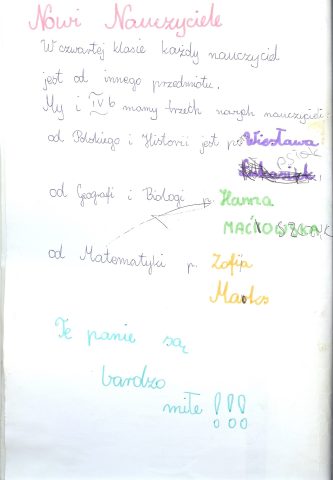 Nowi Nauczyciele
W czwartej klasie każdy nauczyciel
jest od innego przedmiotu.
My i IV b mamy trzech nowych nauczycieli:
od Polskiego i Historii jest p. Wiesława
od Geografi i Biologi p. Hanna
od Matematyki p. Zofia
Marks
Te panie są
bardzo
miłe !!!